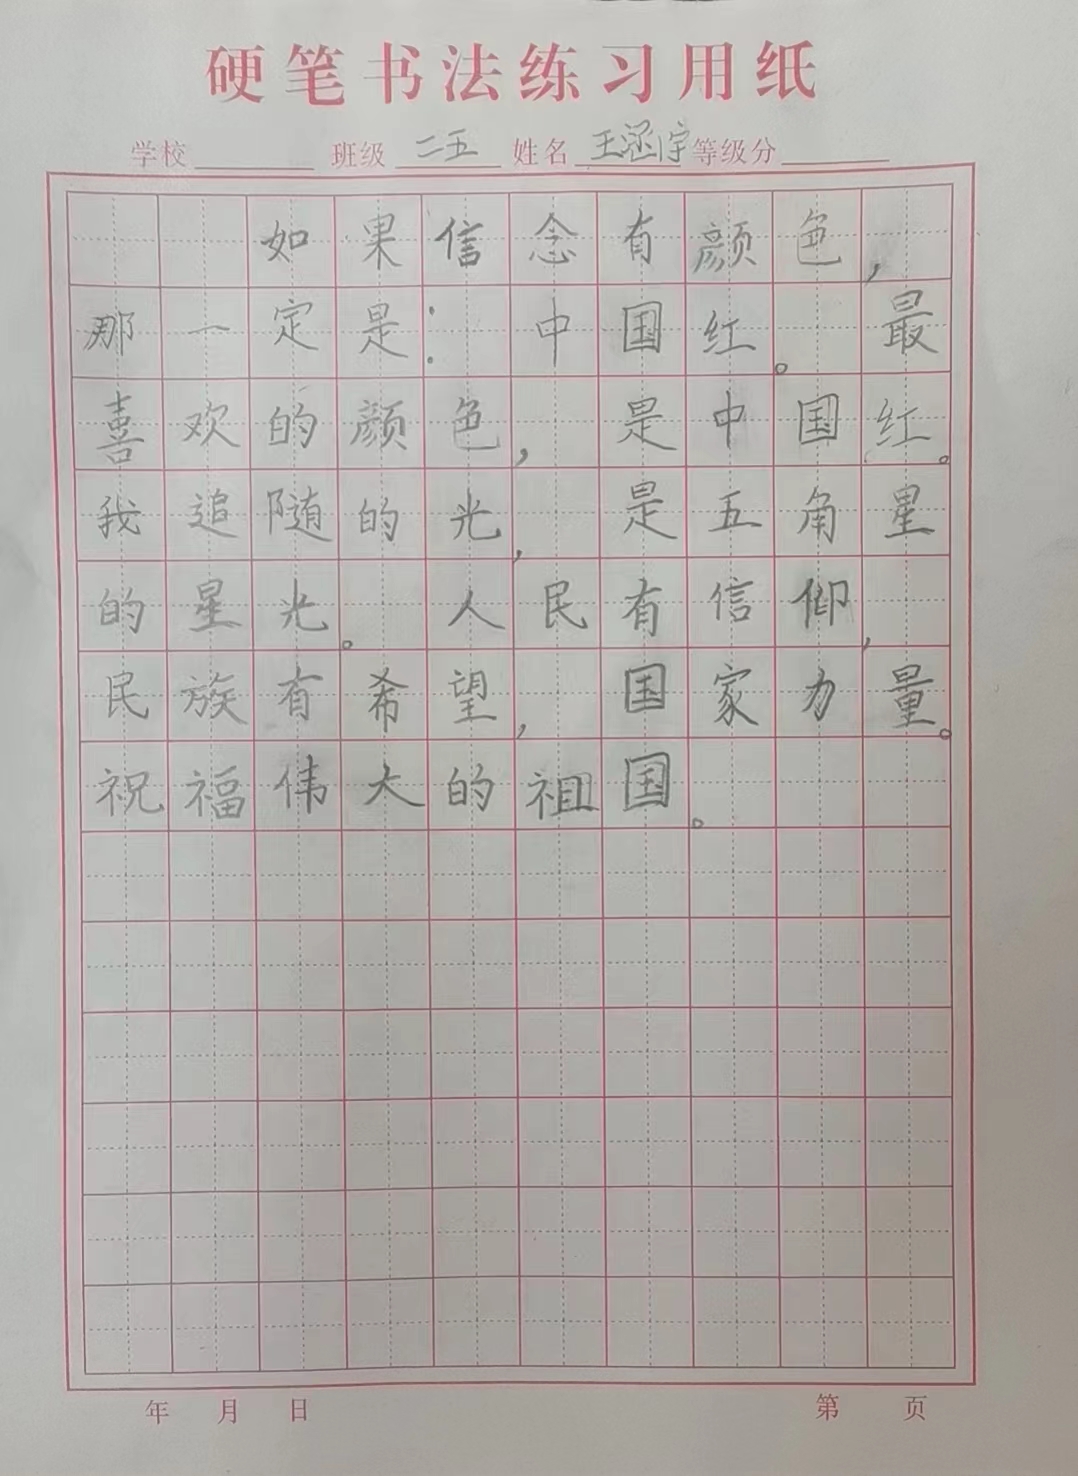 硬笔书法练习用纸
学校 班级 二五 姓名 王涵宇 等级分
如果信念有颜色，
那一定是：中国红。最
喜欢的颜色，是中国红。
我追随的光，是五角星
的星光。人民有信仰，
民族有希望，国家力量。
祝福伟大的祖国。
年 月 日 第 页